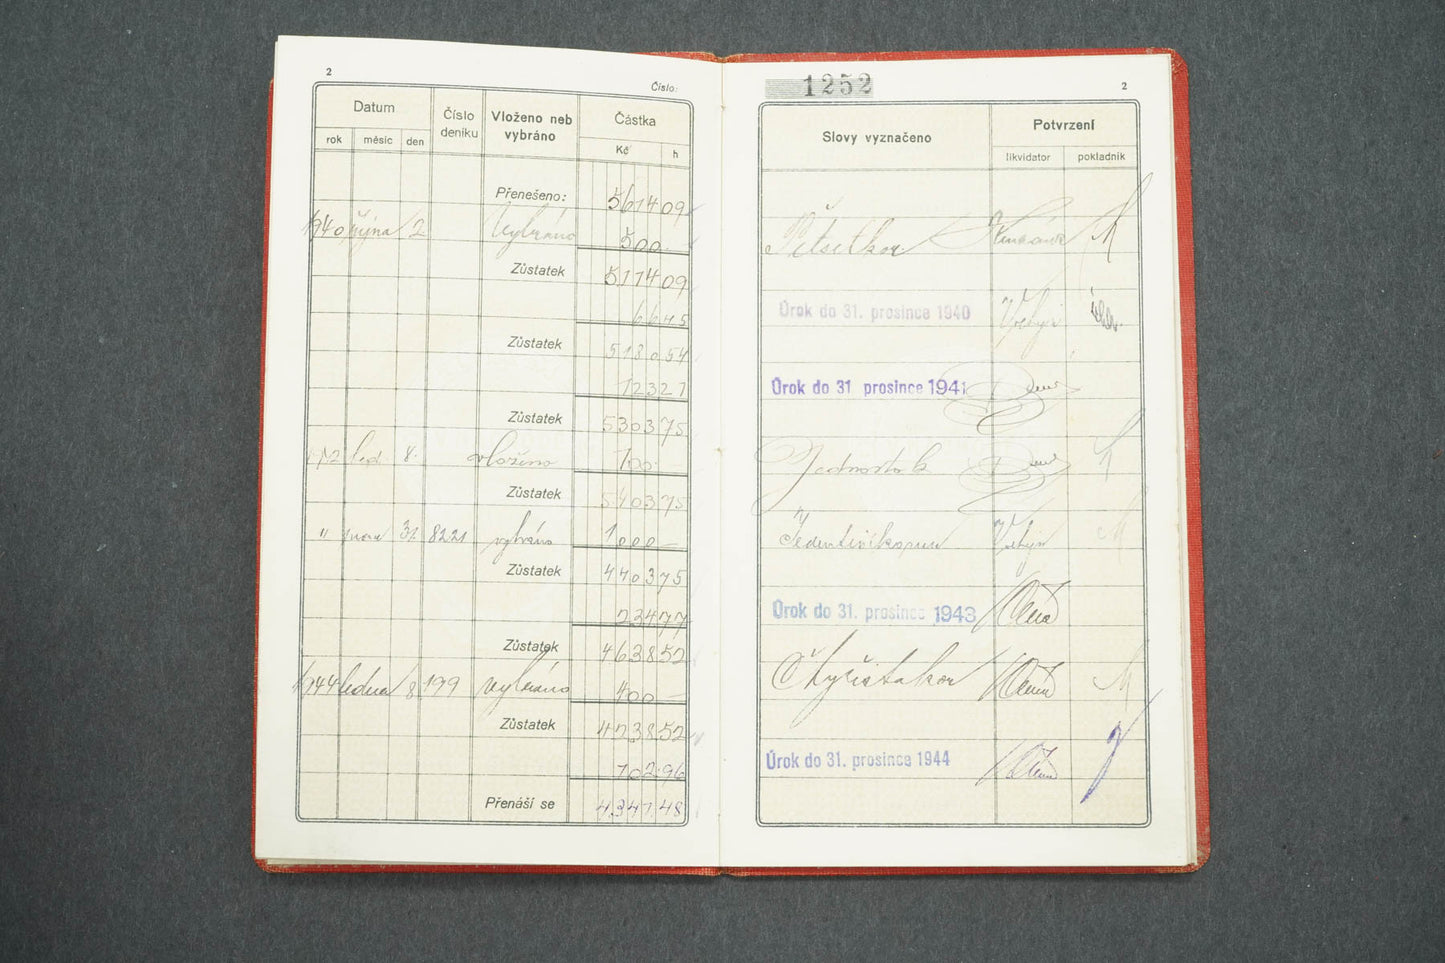 2
Číslo:
Datum
Číslo deníku
Vloženo neb vybráno
Částka
rok měsíc den
Kč h
Přenešeno: 5614 09
1940 října 2 Vybráno 500 -
Zůstatek 5114 09
66 45
Zůstatek 5180 54
123 27
Zůstatek 5303 75
led. 8. vloženo 100 -
Zůstatek 5403 75
" února 31 8221 vybráno 1000 -
Zůstatek 4403 75
234 77
Zůstatek 4638 52
1944 ledna 8 199 vybráno 400 -
Zůstatek 4238 52
102.96
Přenáší se 4.341.48
1252
2
Slovy vyznačeno
Potvrzení
likvidátor pokladník
Pětsetkor
Úrok do 31. prosince 1940
Úrok do 31 prosince 1941
Jednosto k
Jedentisíckorun
Úrok do 31. prosince 1943
Čtyřistakor
Úrok do 31. prosince 1944